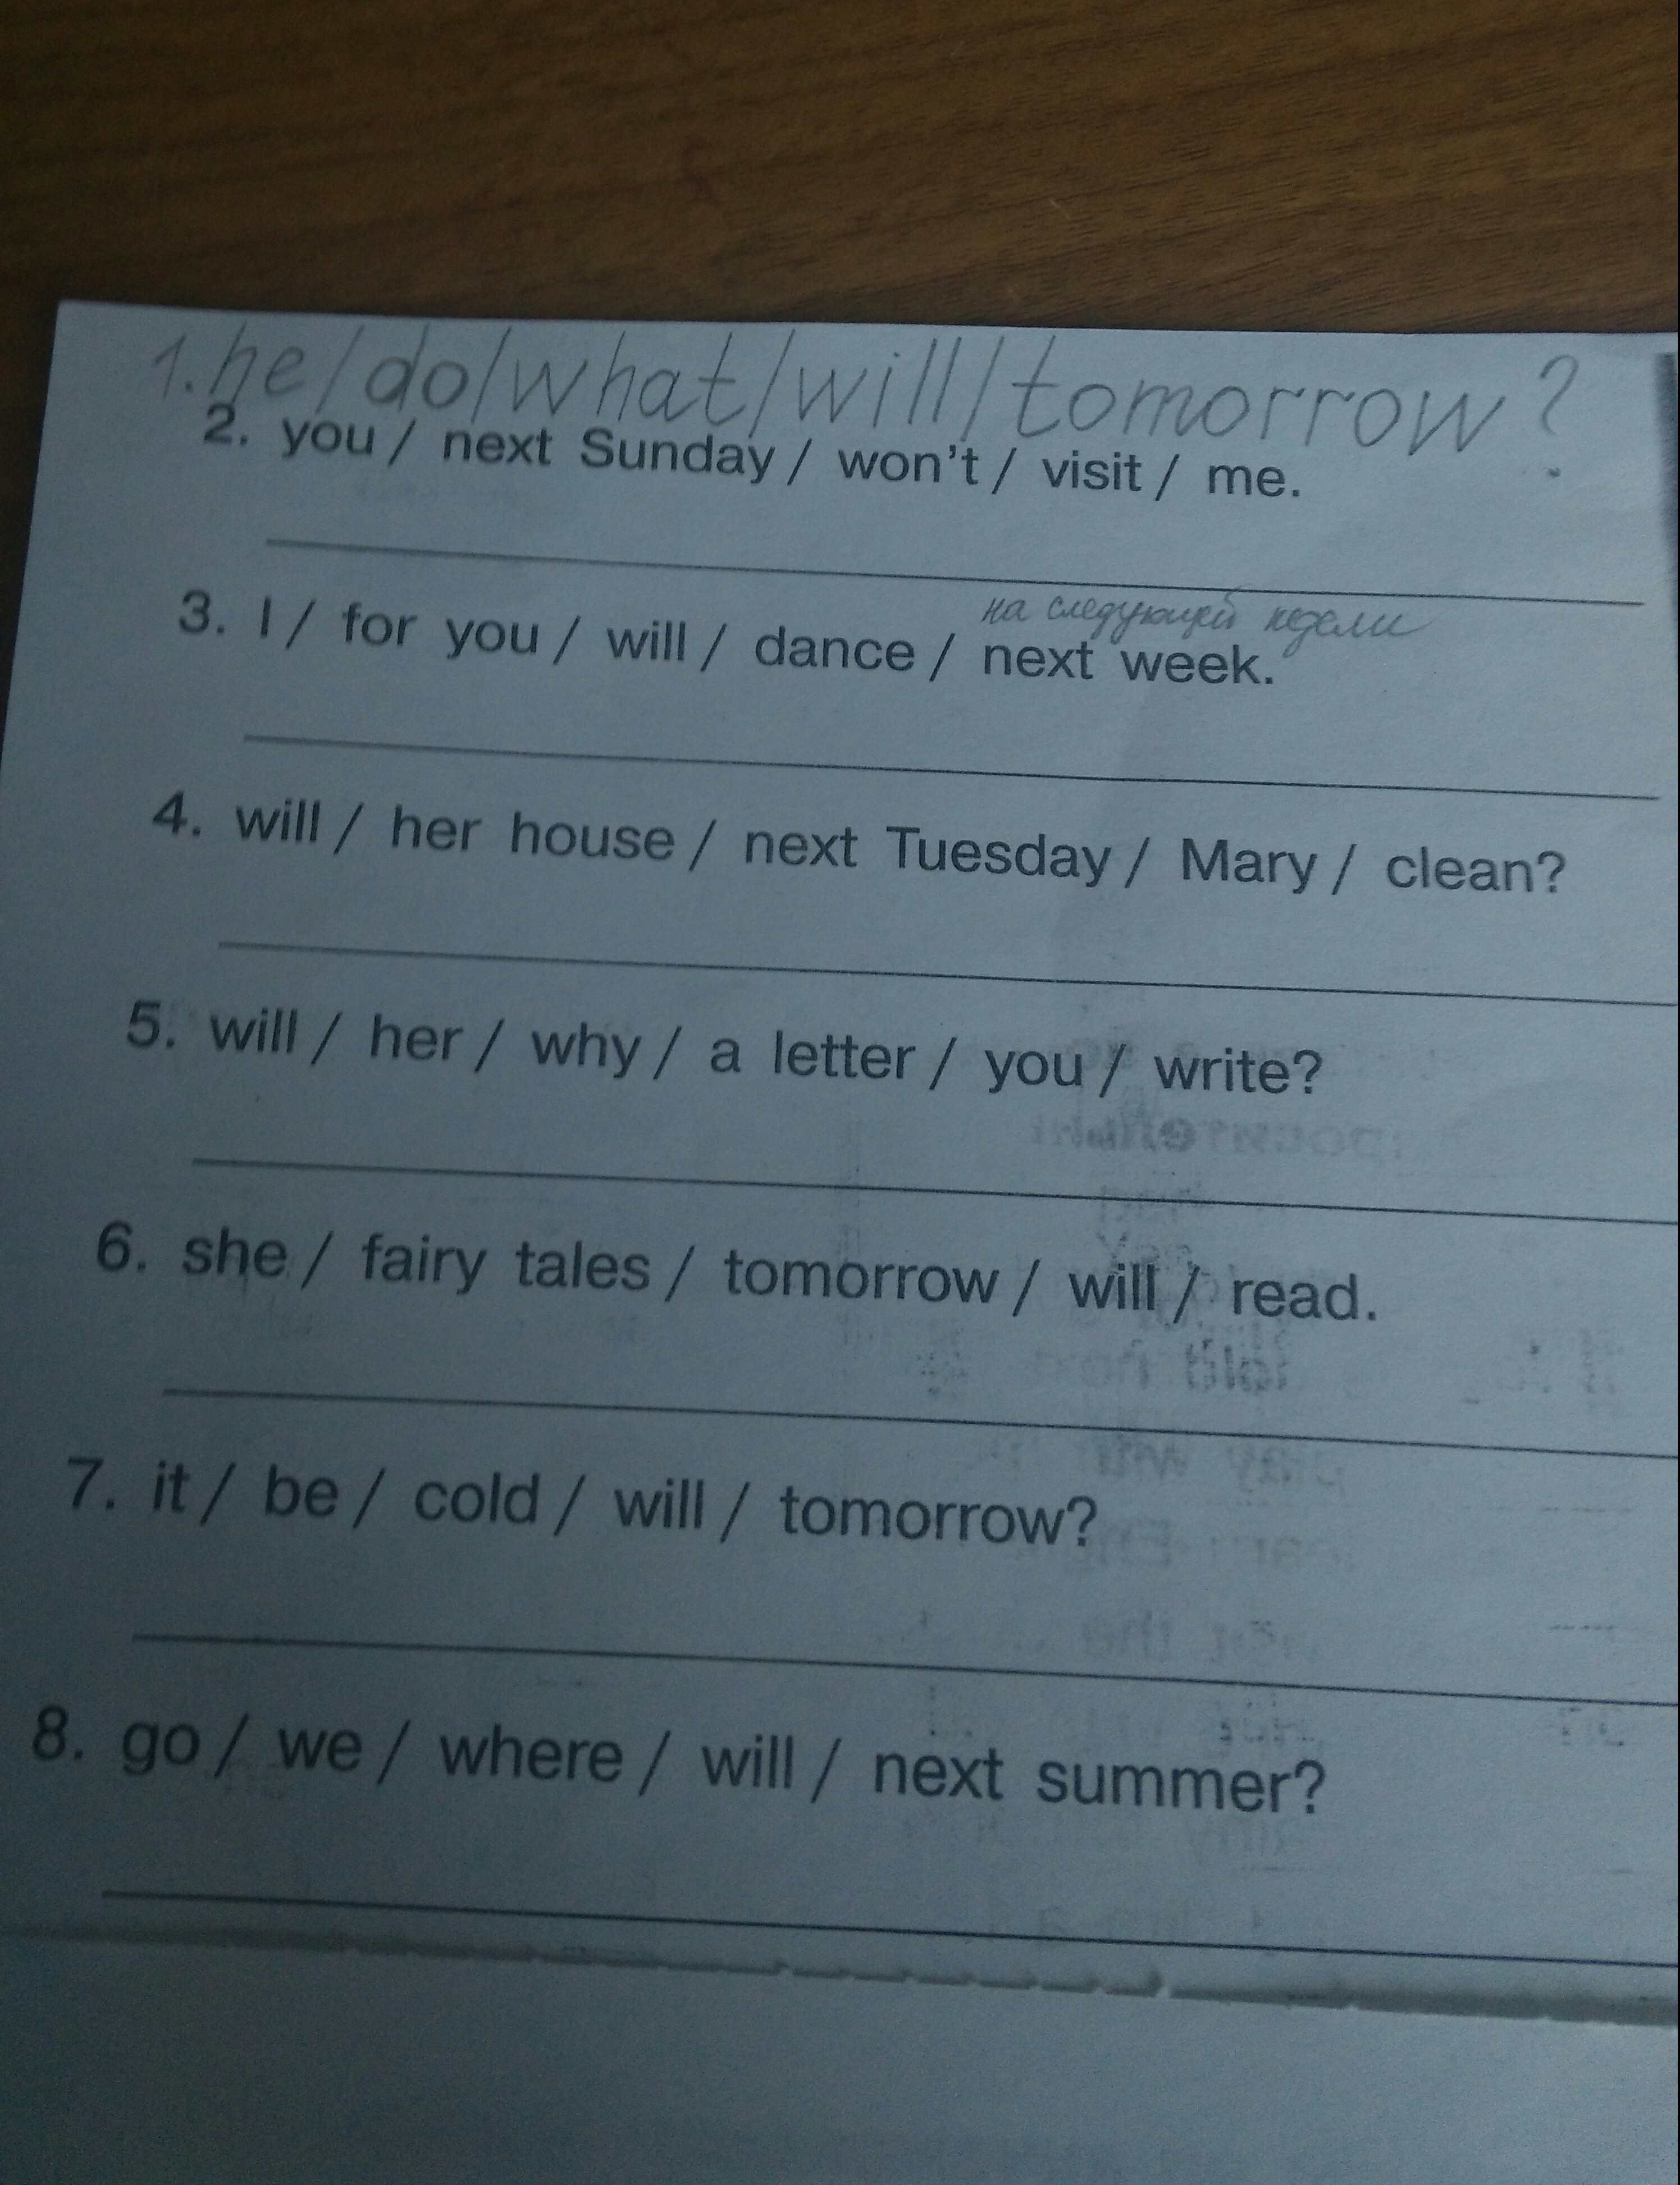 1. he/do/what/will/tomorrow?
2. you / next Sunday / won't / visit / me.
на следующей недели
3. I / for you / will / dance / next week.
4. will / her house / next Tuesday / Mary / clean?
5. will / her / why / a letter / you / write?
6. she / fairy tales / tomorrow / will / read.
7. it / be / cold / will / tomorrow?
8. go / we / where / will / next summer?